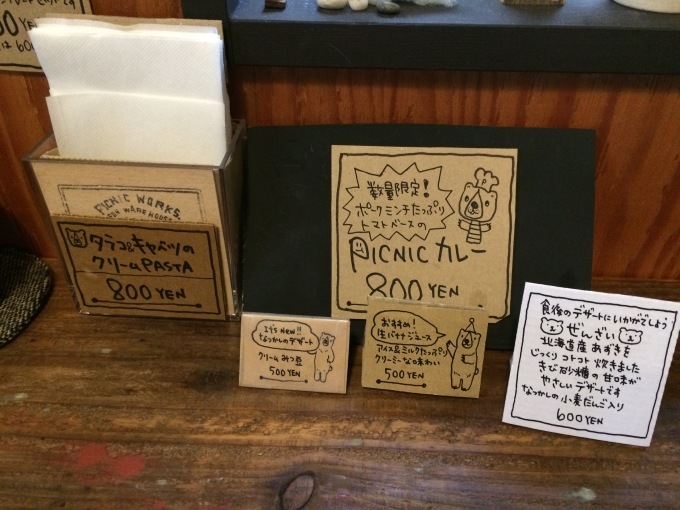 00 YEN
は 600
PICNIC WORKS
タラコ&キャベツの
クリームPASTA
800 YEN
数量限定!
ポークミンチたっぷり
トマトベースの
PICNIC カレー
800 YEN
It's NEW!!
なつかしのデザート
クリームみつ豆
500 YEN
おすすめ!
生バナナジュース
アイス&ミルクたっぷり
クリーミーな味わい
500 YEN
食後のデザートにいかがでしょう
ぜんざい
北海道産 あずきを
じっくり コトコト 炊きました
きび砂糖の 甘味が
やさしい デザートです
なつかしの小麦だんご入り
600 YEN